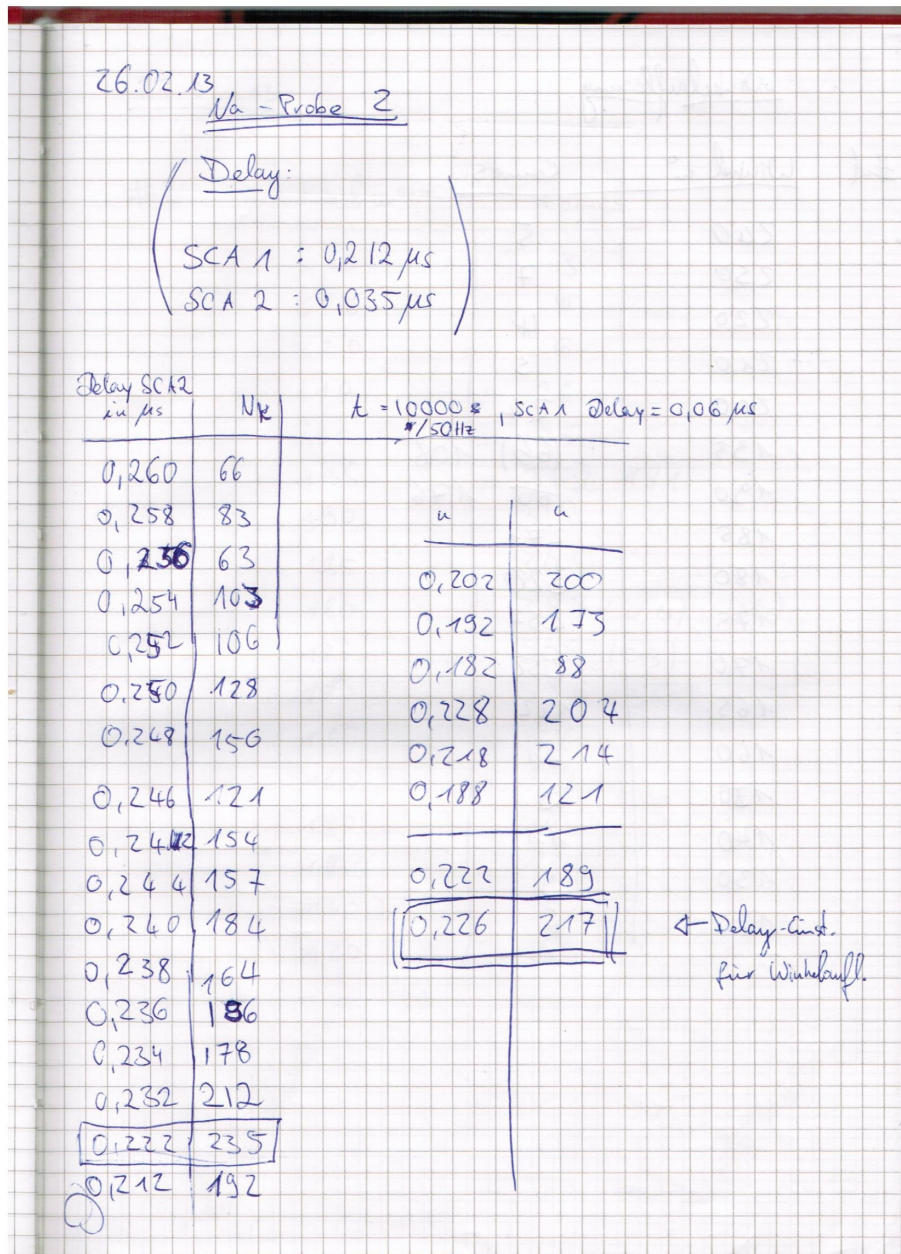 26.02.13
Na-Probe 2
Delay:
SCA 1 : 0,212 µs
SCA 2 : 0,035 µs
Delay SCA2
in µs Nk t = 10000 , SCA 1 Delay = 0,06 µs
/50Hz
0,260 66
0,258 83
0,256 63
0,254 103
0,252 106
0,250 128
0,248 156
0,246 121
0,242 154
0,244 157
0,240 184
0,238 164
0,236 186
0,234 178
0,232 212
0,222 235
0,212 192
" "
0,202 200
0,192 175
0,182 88
0,228 204
0,218 214
0,188 121
0,222 189
0,226 217 ← Delay-Einst.
für Winkelaufl.